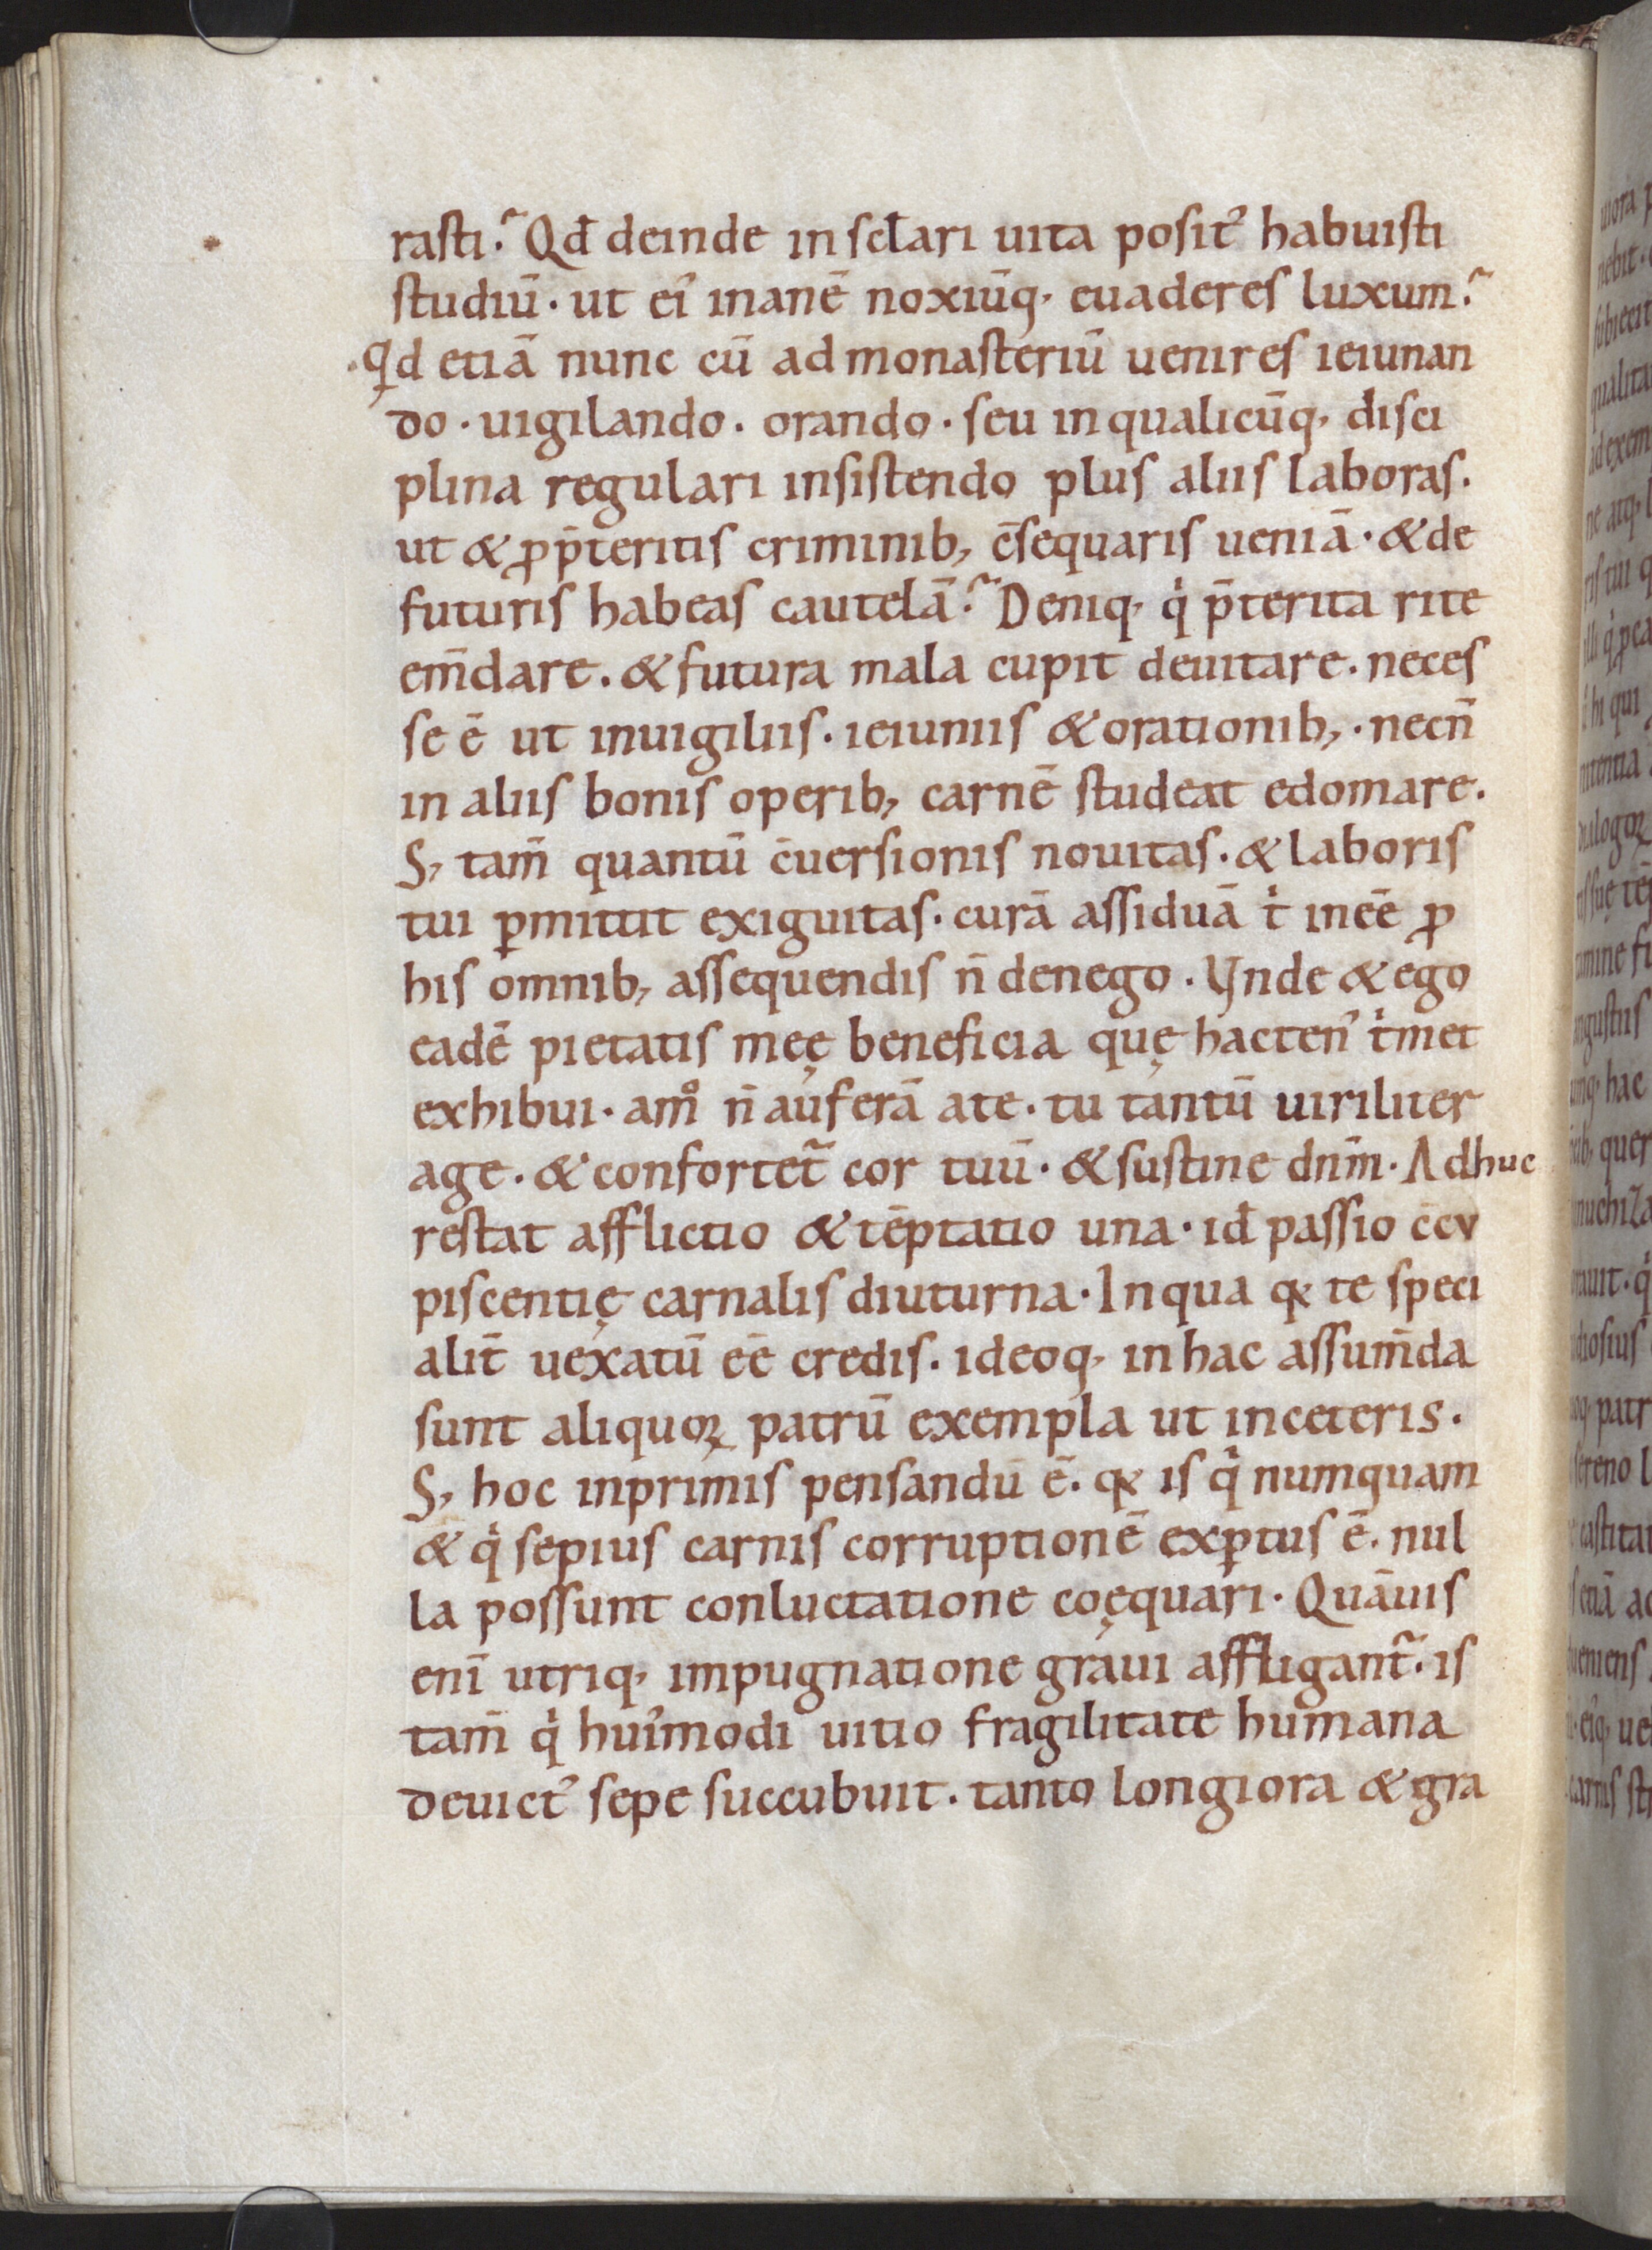 rasti? Qđ deinde in scłari uita posit᾽ habuisti
studiū · ut ei᾽ inanē noxiūq· euaderes luxum?
Qd etiā nunc cū ad monasteriū uenires ieiunan
do · uigilando · orando · seu in qualicūq· disci
plina regulari insistendo plus aliis laboras.
ut & ꝓ p̄teritis criminib; c̄sequaris ueniā · & de
futuris habeas cautelā? Deniq· qͥ p̄terita rite
em̄dare . & futura mala cupit deuitare . neces
se ē ut in uigiliis . ieiuniis & orationib; . necn̄
in aliis bonis operib; carnē studeat edomare .
S; tam̄ quantū c̄uersionis nouitas . & laboris
tui ꝑmittit exiguitas . curā assiduā tͥ ineē ꝓ
his omnib; assequendis n̄ denego . Vnde & ego
eadē pietatis meę beneficia quę hacten᾽ tͥmet
exhibui . am̊ n̄ auferā a te . tu tantū uiriliter
age . & confortet᷑ cor tuū . & sustine dn̄m . Adhuc
restat afflictio & tēptatio una . iđ passio c̄cu
piscentię carnalis diuturna . In qua qꝫ te speci
alit̄ uexatū eē credis . ideoq· in hac assum̄da
sunt aliquoꝝ patrū exempla ut in ceteris .
S; hoc inprimis pensandū ē . qꝫ is qͥ numquam
& qͥ sepius carnis corruptionē exꝑtus ē . nul
la possunt conluctatione coęquari . Quāuis
enī utriq· impugnatione graui affligant᷑ . is
tam̄ qͥ hui᾽modi uitio fragilitate humana
deuict᾽ sepe succubuit . tanto longiora & gra